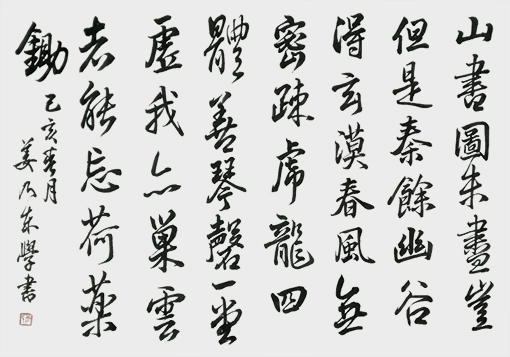 山書圖未盡豈
但是秦餘幽谷
得玄漠春風無
密疎虎龍四
體善琴磬一堂
虛我亦巢雲
者能忘荷藥
鋤
己亥春月
姜乃東學書